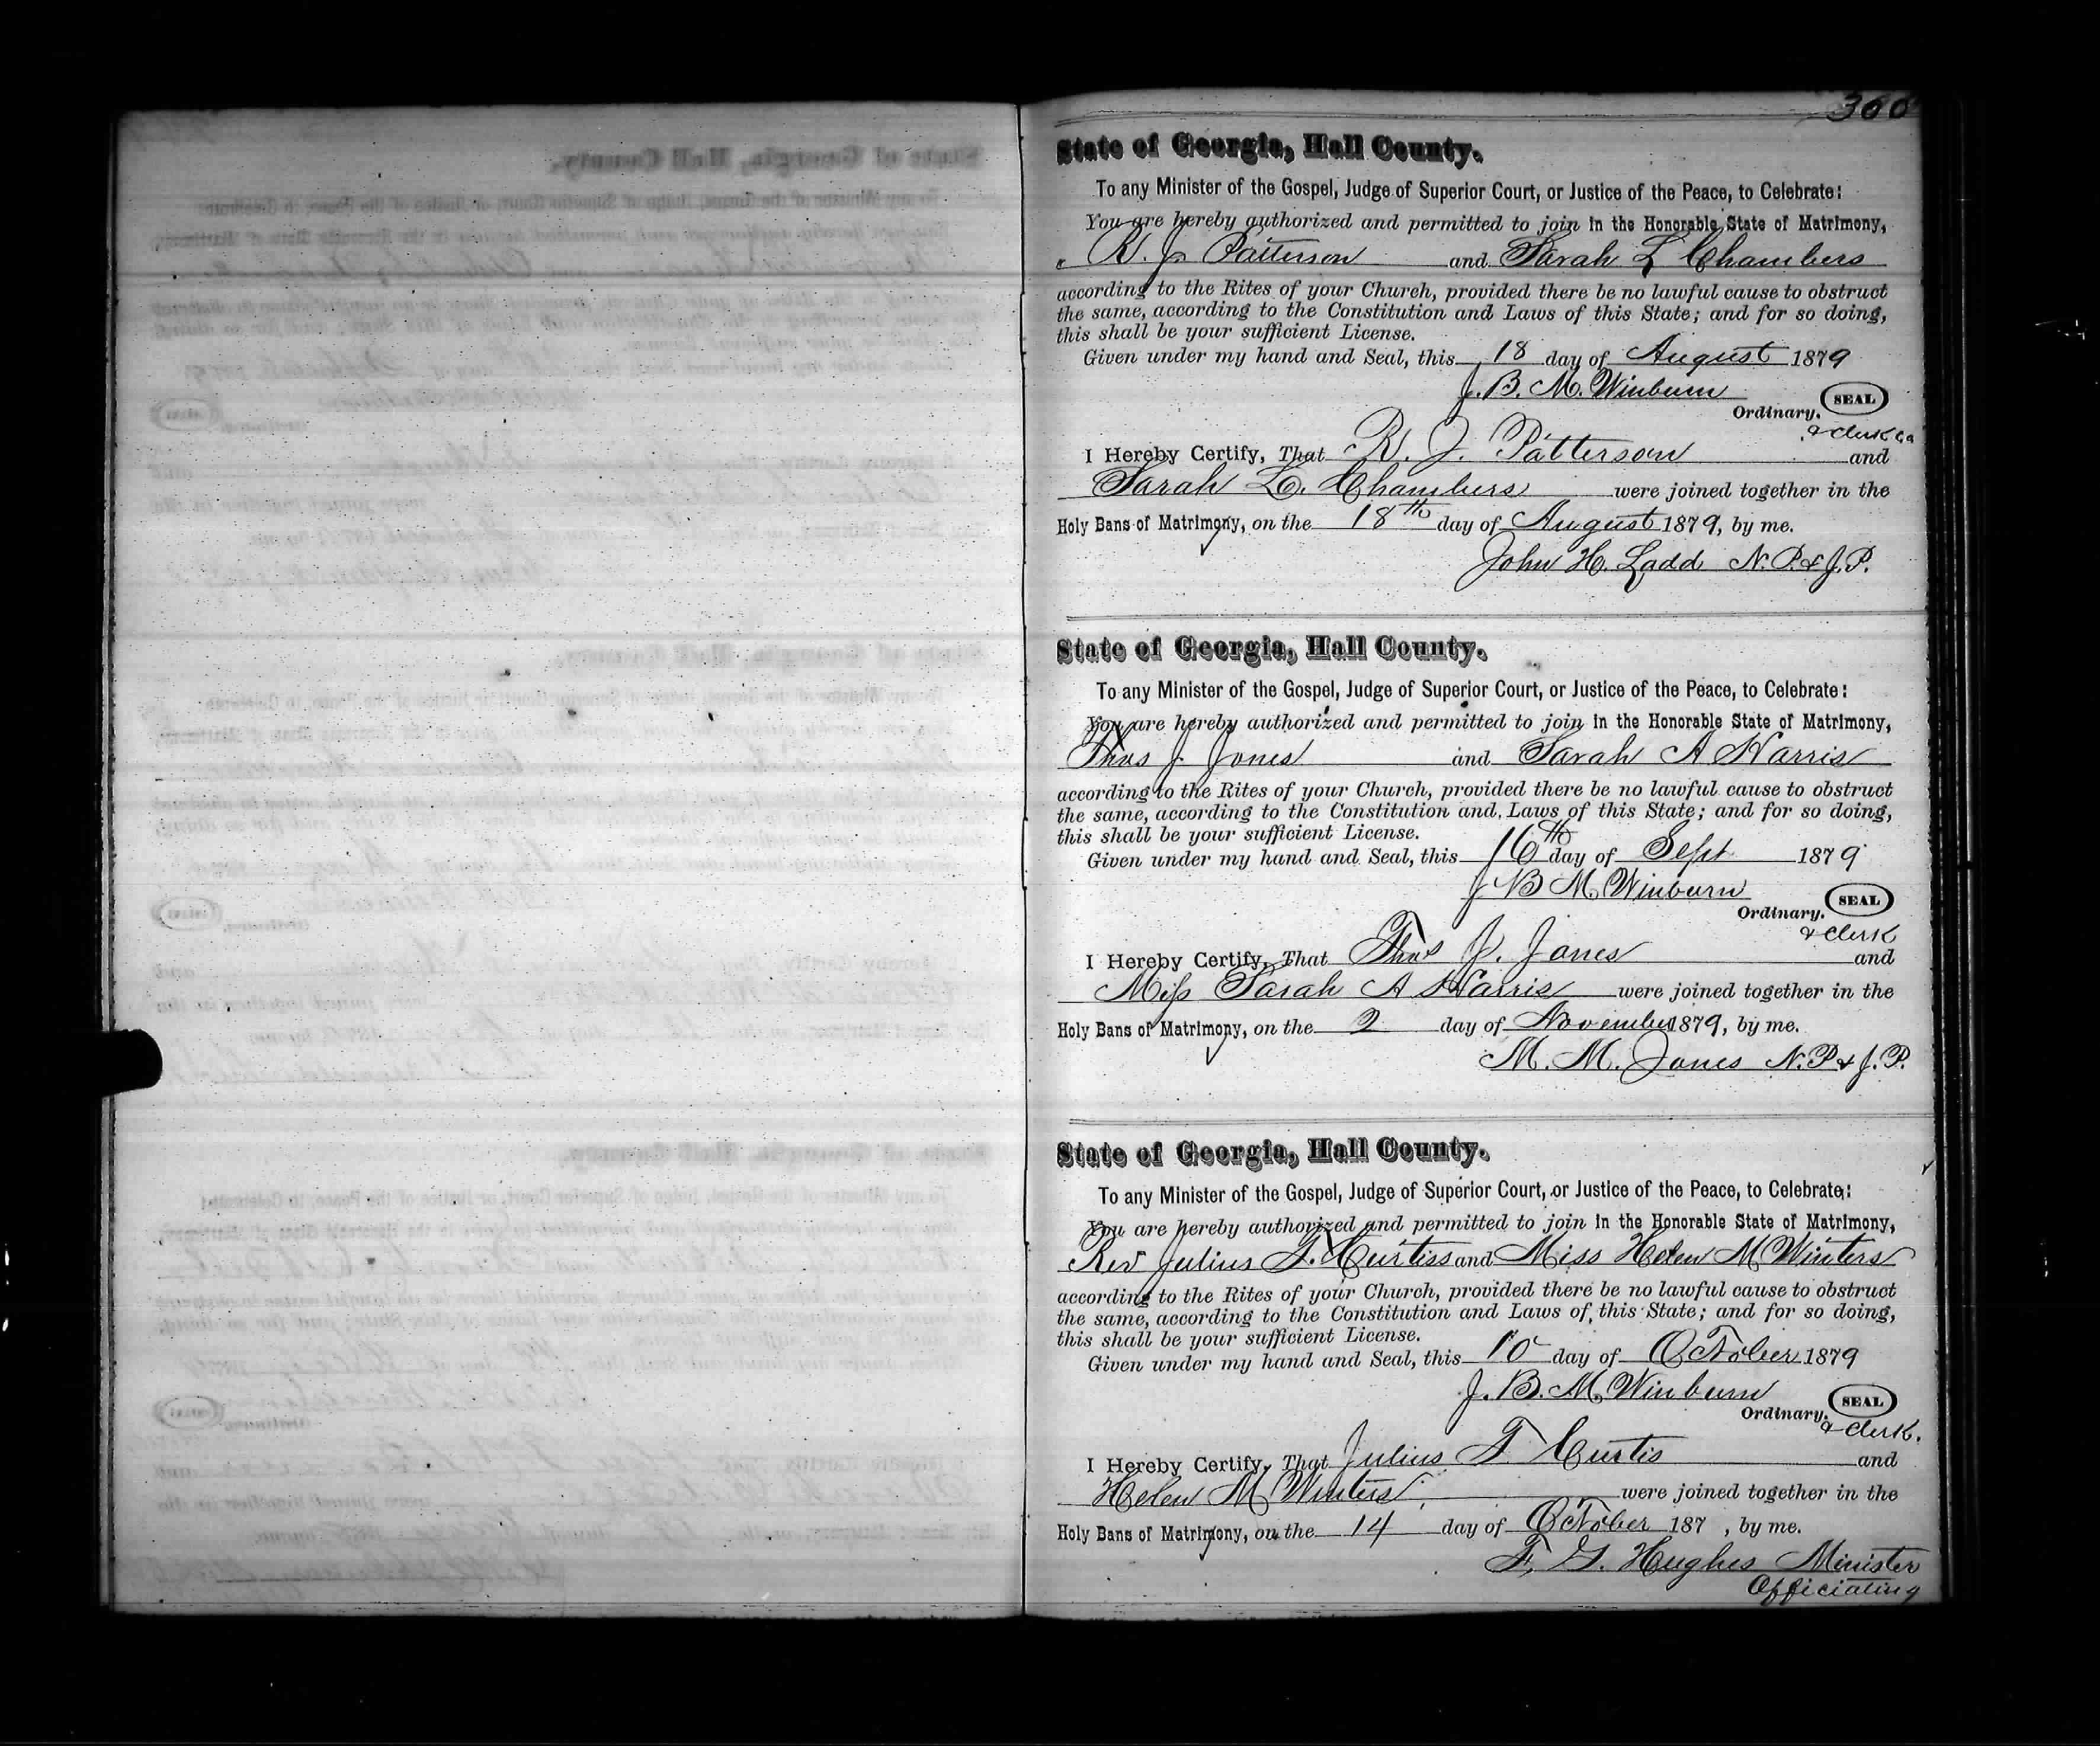 300
State of Georgia, Hall County.
To any Minister of the Gospel, Judge of Superior Court, or Justice of the Peace, to Celebrate:
You are hereby authorized and permitted to join in the Honorable State of Matrimony,
R. J. Patterson and Sarah L Chambers
according to the Rites of your Church, provided there be no lawful cause to obstruct
the same, according to the Constitution and Laws of this State; and for so doing,
this shall be your sufficient License.
Given under my hand and Seal, this 18 day of August 1879
J. B. M. Winburn
Ordinary. SEAL
& Clerk
I Hereby Certify, That R. J. Patterson and
Sarah L. Chambers were joined together in the
Holy Bans of Matrimony, on the 18th day of August 1879, by me.
John H. Ladd N. P. & J. P.
State of Georgia, Hall County.
To any Minister of the Gospel, Judge of Superior Court, or Justice of the Peace, to Celebrate:
You are hereby authorized and permitted to join in the Honorable State of Matrimony,
Thos J Jones and Sarah A Harris
according to the Rites of your Church, provided there be no lawful cause to obstruct
the same, according to the Constitution and Laws of this State; and for so doing,
this shall be your sufficient License.
Given under my hand and Seal, this 16th day of Sept 1879
J B M Winburn
Ordinary. SEAL
& Clerk
I Hereby Certify, That Thos J. Jones and
Miss Sarah A Harris were joined together in the
Holy Bans of Matrimony, on the 2 day of November 1879, by me.
M. M. Jones N. P & J. P.
State of Georgia, Hall County.
To any Minister of the Gospel, Judge of Superior Court, or Justice of the Peace, to Celebrate:
You are hereby authorized and permitted to join in the Honorable State of Matrimony,
Rev Julius T. Curtiss and Miss Helen M Winters
according to the Rites of your Church, provided there be no lawful cause to obstruct
the same, according to the Constitution and Laws of this State; and for so doing,
this shall be your sufficient License.
Given under my hand and Seal, this 10 day of October 1879
J. B. M. Winburn
Ordinary. SEAL
& Clerk.
I Hereby Certify, That Julius T Curtis and
Helen M Winters were joined together in the
Holy Bans of Matrimony, on the 14 day of October 187 , by me.
F. G. Hughes Minister
Officiating